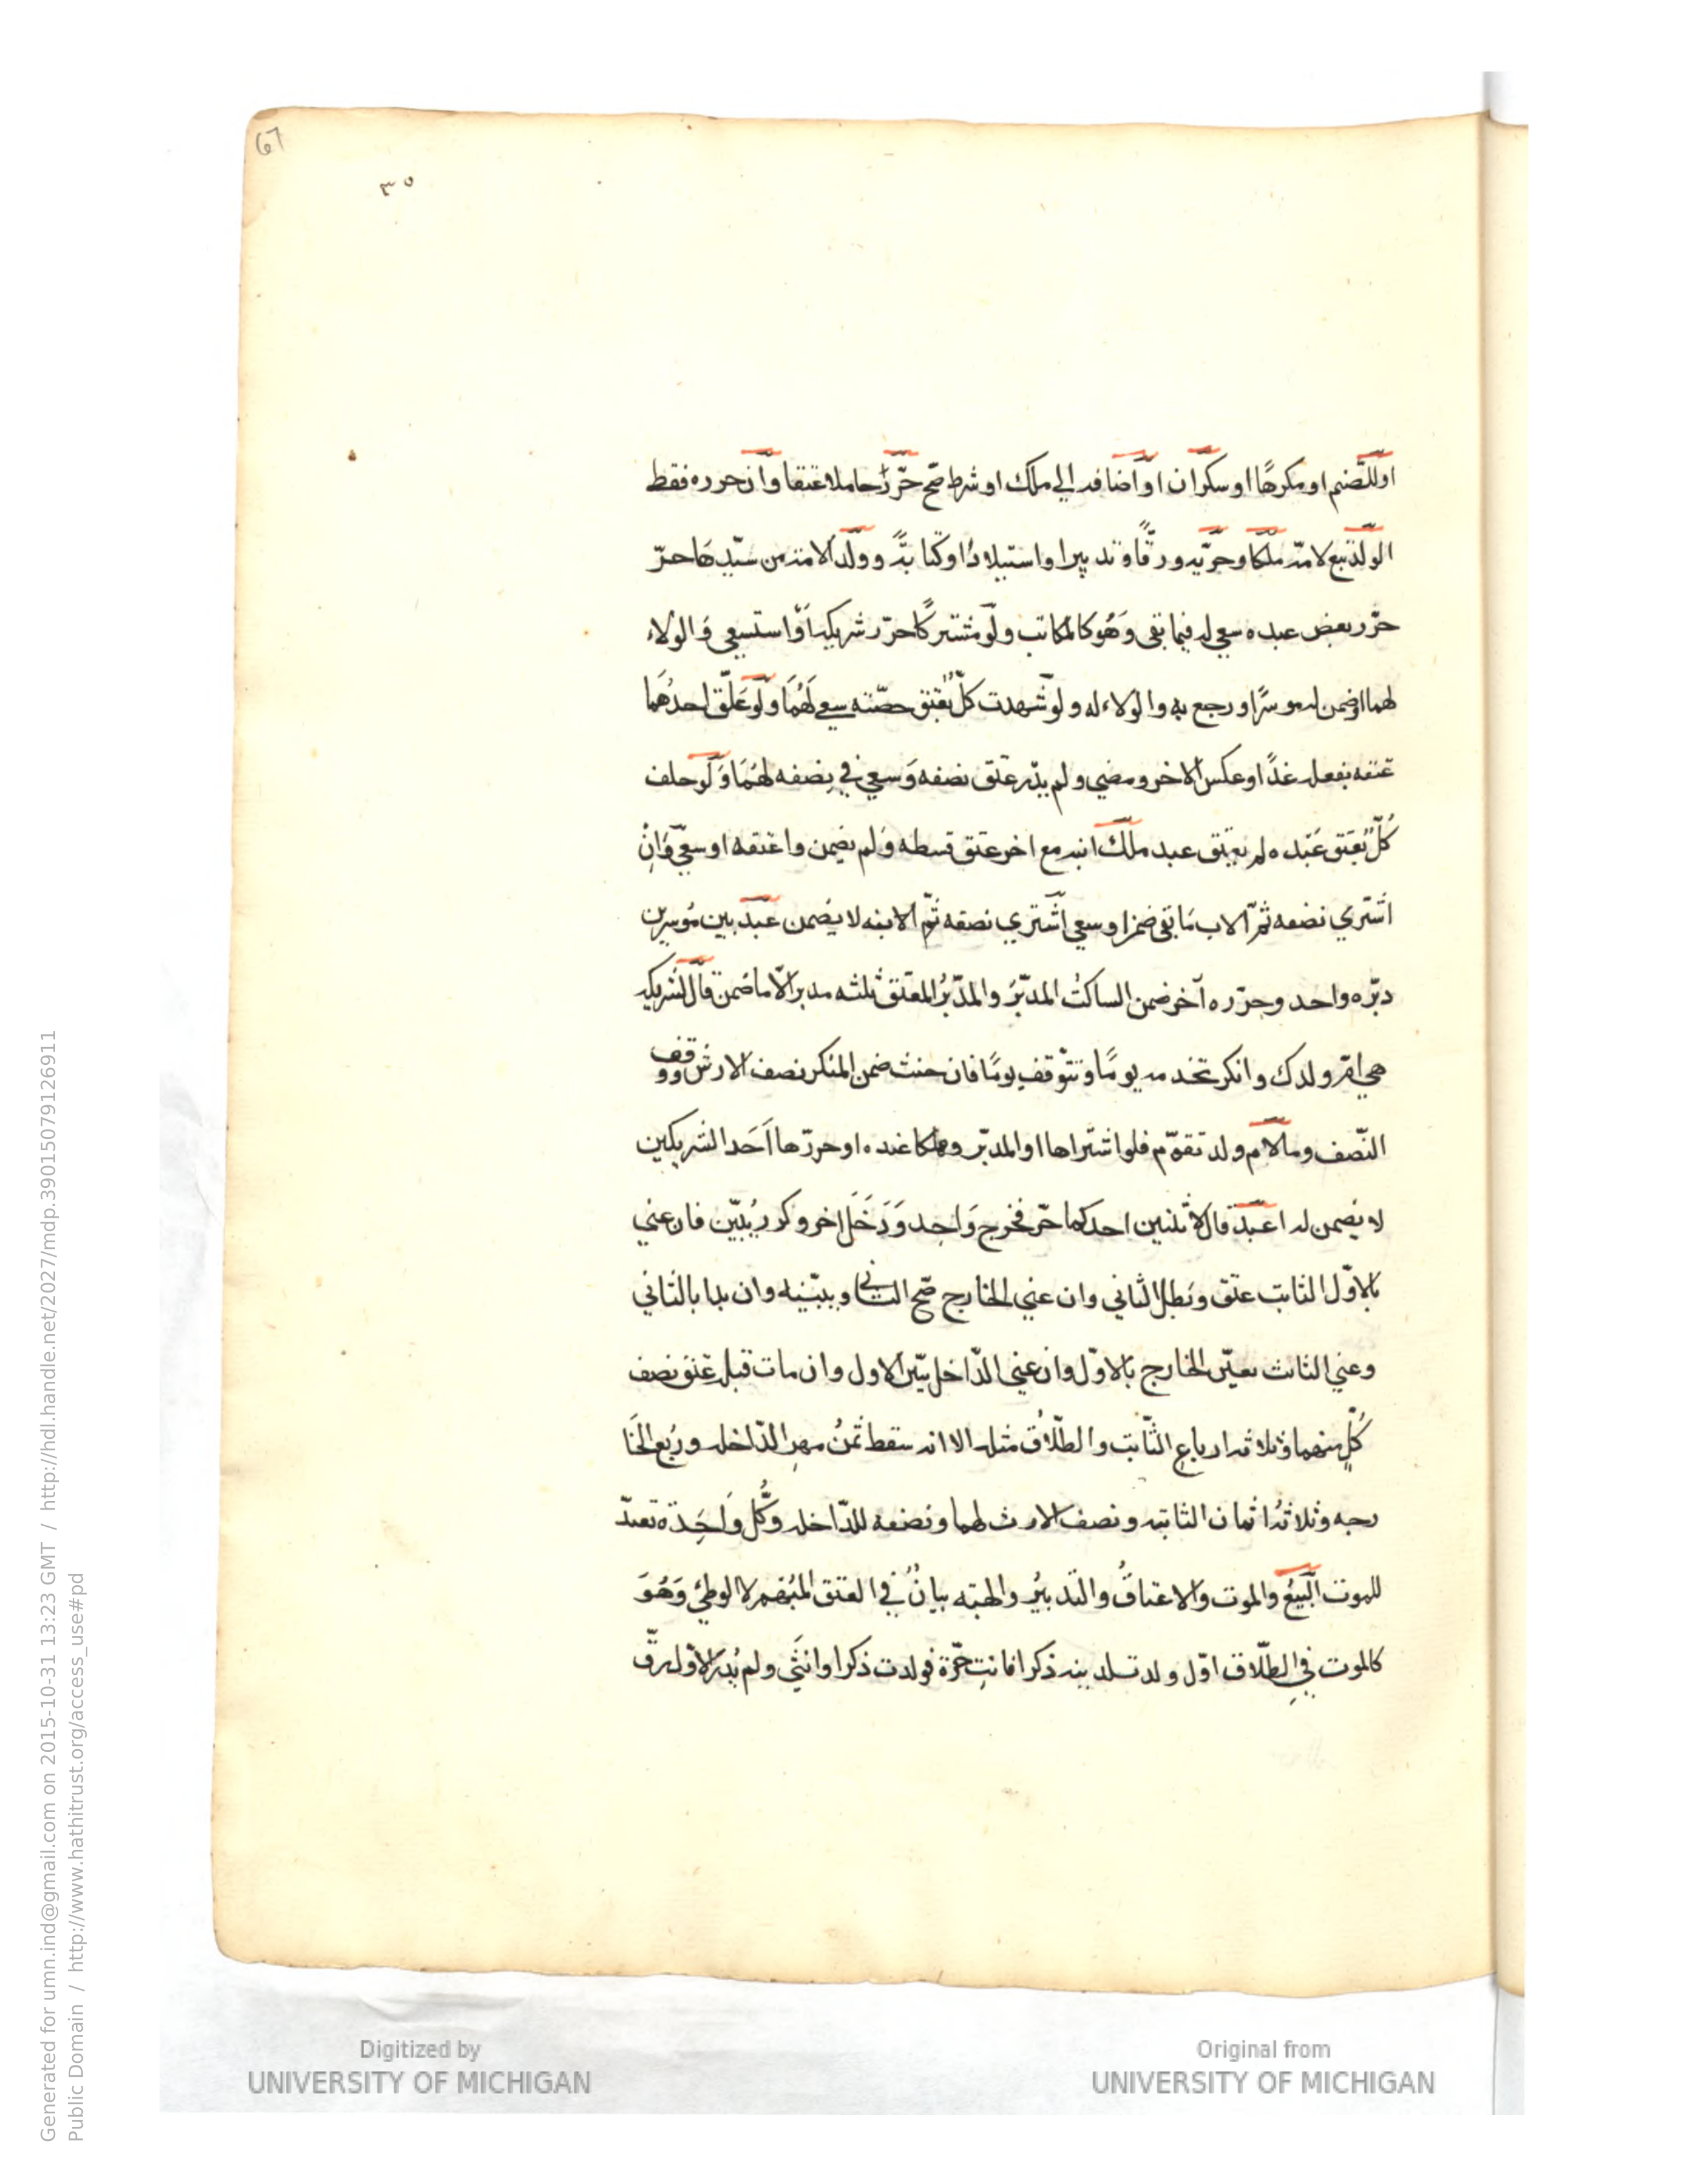 67
٣٥
او للصنم او مكرها او سكران او اضافه الي ملك او شرط صح حرّر حاملا عتقا وان حرره فقط
الولد تبع لامّه ملكا وحرّيه ورقّا وتدبيرا واستيلادا وكتابةً وولد الامة من سيّدها حرّ
حرّر بعض عبده سعي له فيما بقي وهو كالمكاتب ولو مشتركًا حرّر شريكه او استسعي والولاء
لهما او ضمن له موسرًا ورجع به والولاء له ولو شهدت كلّ بعتق حصّته سعي لهُمَا ولو عَلّق احدهُمَا
عتقه بفعل غدًا وعكس الاخر ومضي ولم يدر عتق نصفه وَسعي في نصفه لهُمَا وَلَو حلف
كُلّ بعَتق عَبْده لم يعتق عبد ملك ابنه مع اخر عتق قسطه ولم يضمن واعتقه او سعيّ وَانْ
اشتري نصفه ثمّ الاب مَا بقي ضمن او سعي اشتري نصفه ثمّ الابنه لا يضمن عبد بين مُوسرين
دبّره واحد وحرّره آخر ضمن الساكتُ المدبّرَ والمدّبّرُ المعتق ثلثه مدبرا لا ما ضمن قال لشريكه
هي امّ ولدك وانكر تخدمه يومًا وتتوْقف يومًا فان حنث ضمن المنكر نصف الارش ووقف
النّصف وما لام ولد تقوّم فلو اشتراها او المدبّر وهلكا عنده او حررّها اَحَد الشريكين
لا يضمن له اعبد قال لاثنين احدكما حرّ فخرج وَاحِد وَدَخَل اخر وكرر يُبيّن فان عني
بالاوّل الثابت عتق وبَطل الثاني وان عني الخارج صّح الثاني ويبيّنه وان بدا بالثاني
وعني الثابت تعيّن الخارج بالاوّل وان عني الدّاخل بيّن الاول وان مات قبل عتق نصف
كُلّ منهما وثلاثه ارباع الثّابت والطّلاق مثله الا انه سقط ثمنُ مهر الدّاخله وربُع الخَا
رجه وثلاثهُ اثمان الثابته ونصف الارث لهما ونصفه للدّاخله وكُّل وَاحِدة تعتدّ
للموت البَيعُ والموت والاعتاقُ والتدبيُر والهبته بيانٌ في العتق المبْهم لا الوطئ وَهُوَ
كالموت في الطّلاق اوّل ولد تلدينه ذكرا فانتِ حّرة فولدت ذكرا وانثَي ولم يُدر الاوّل رقّ
Digitized by
UNIVERSITY OF MICHIGAN
Original from
UNIVERSITY OF MICHIGAN
Generated for umn.ind@gmail.com on 2015-10-31 13:23 GMT / http://hdl.handle.net/2027/mdp.39015079126911
Public Domain / http://www.hathitrust.org/access_use#pd